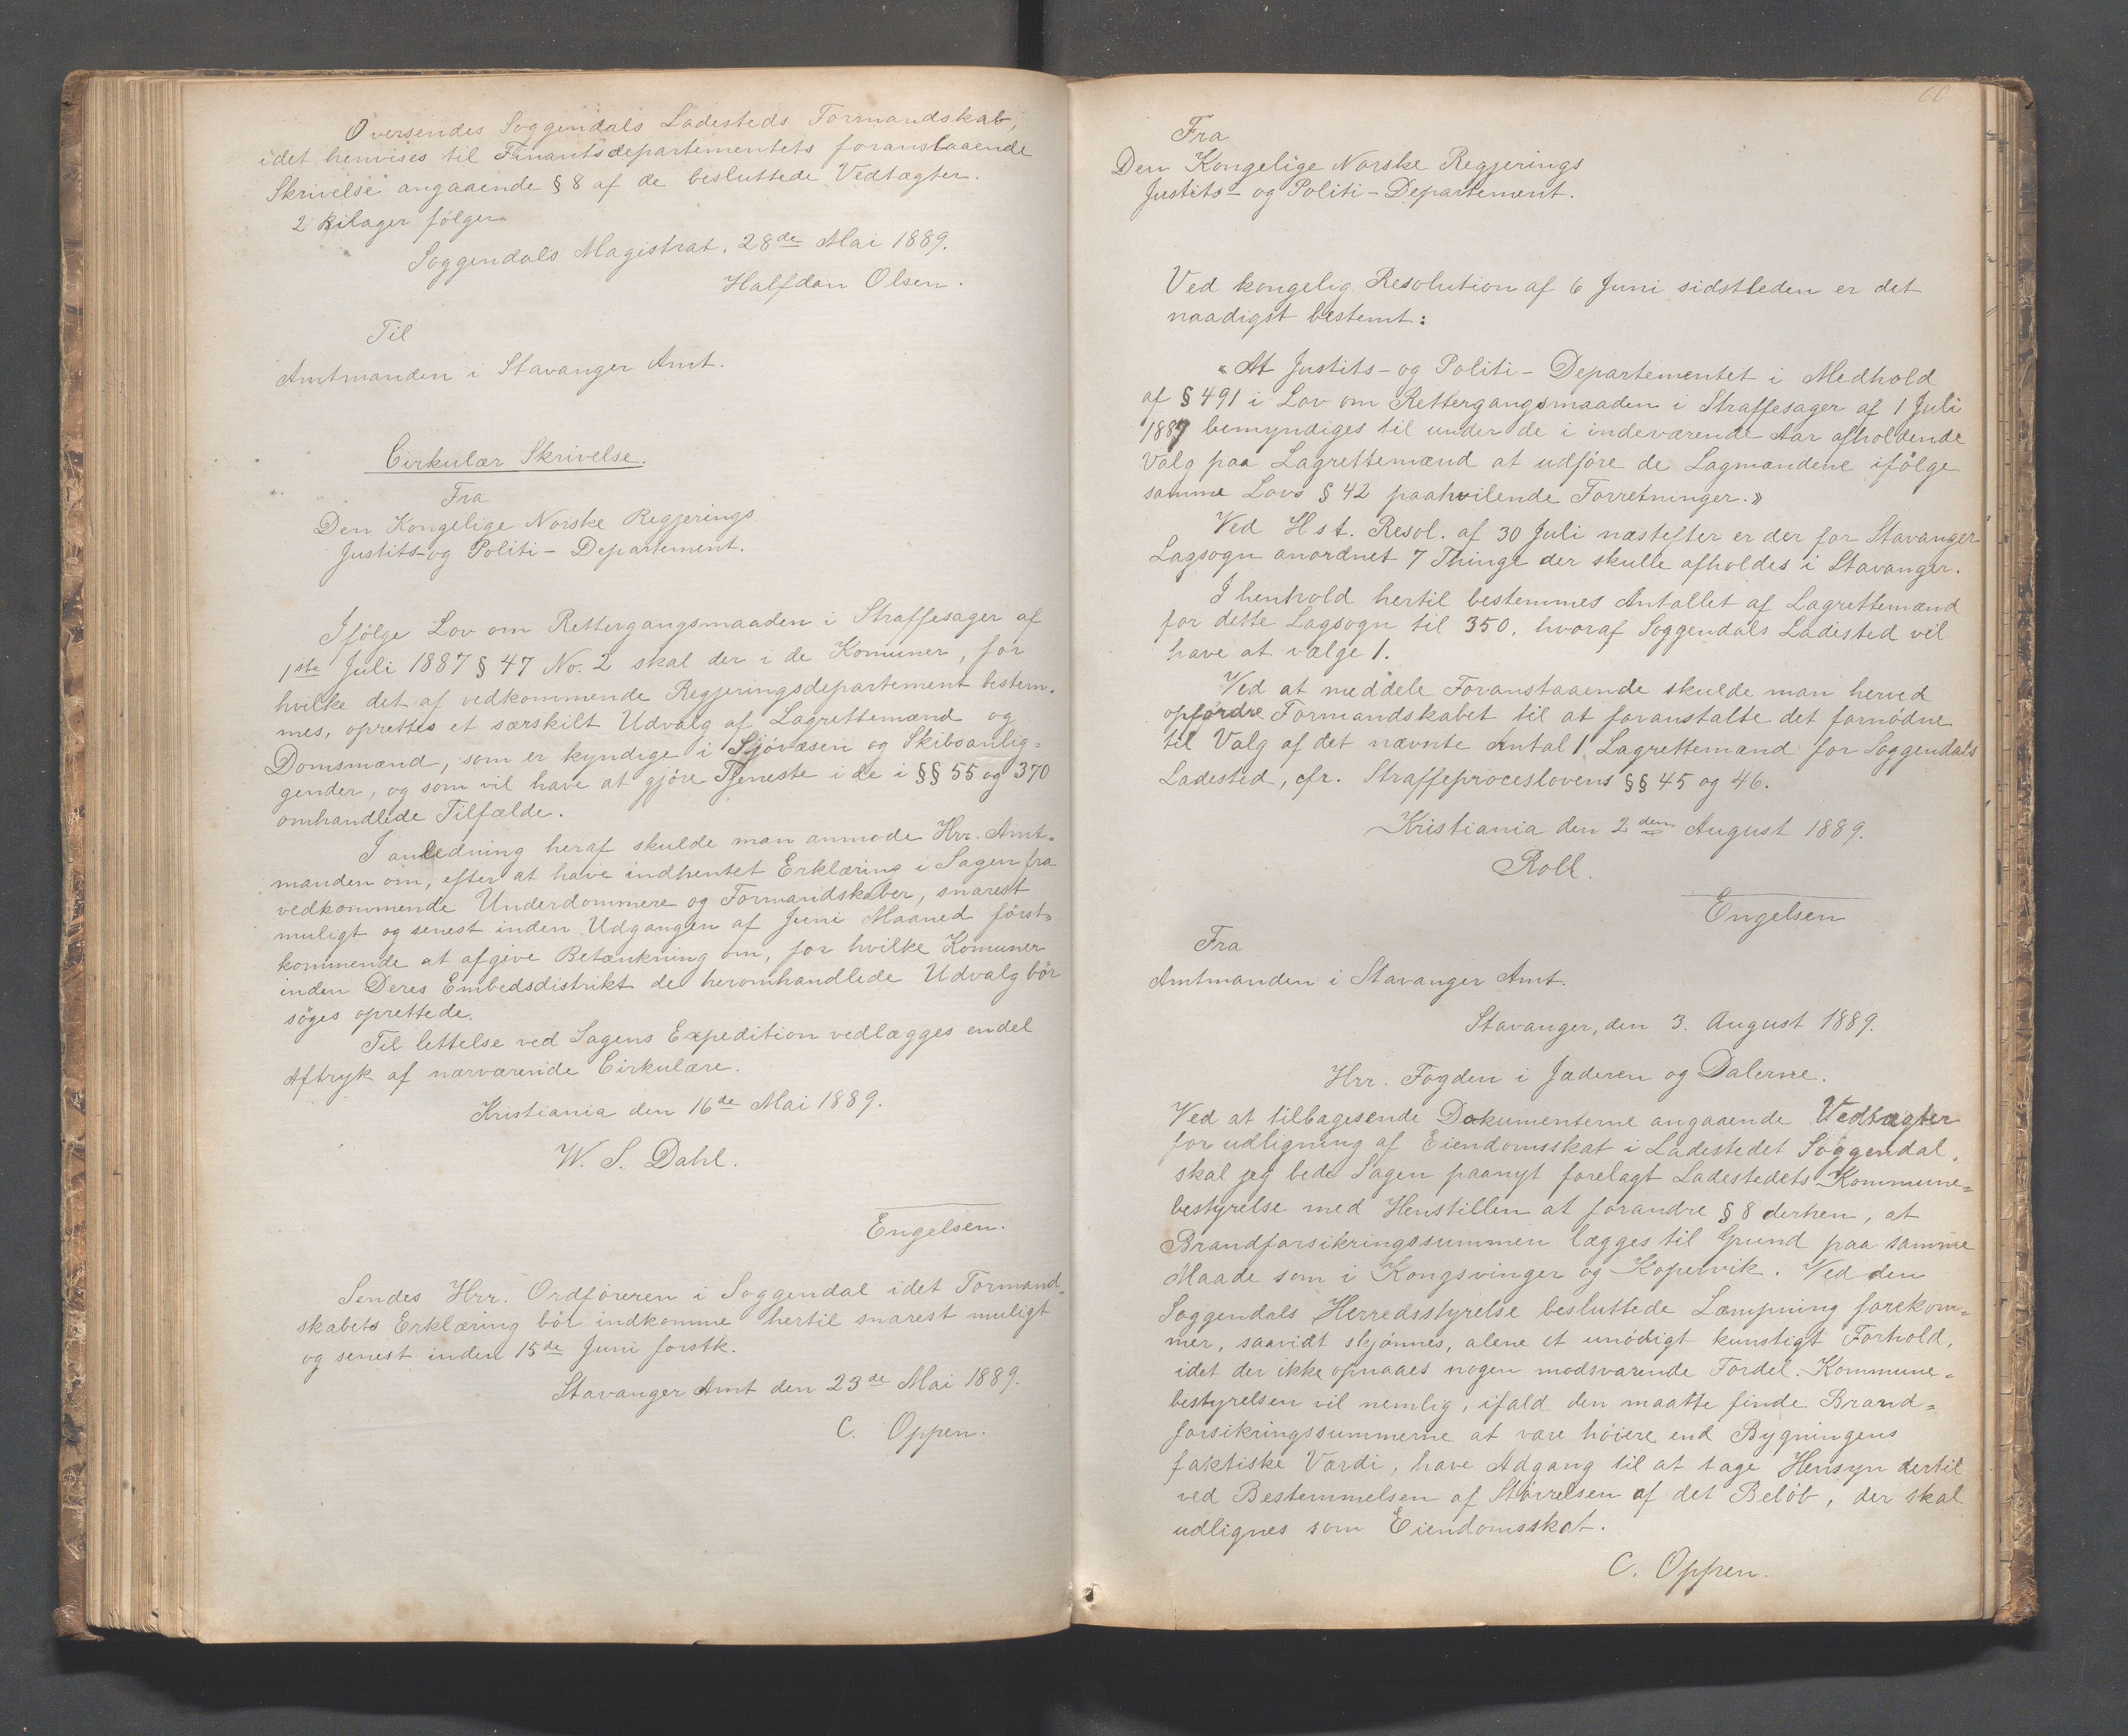 Oversendes Soggendals Ladesteds Formandskab,
idet henvises til Finantsdepartementets foranstaaende
Skrivelse angaaende § 8 af de besluttede Vedtægter.
2 Bilager følger.
Soggendals Magistrat, 28de Mai 1889.
Halfdan Olsen.
Til
Amtmanden i Stavanger Amt.
Cirkulær Skrivelse.
Fra
Den Kongelige Norske Regjerings
Justits- og Politi- Departement.
Ifølge Lov om Rettergangsmaaden i Straffesager af
1ste Juli 1887 § 47 No. 2 skal der i de Komuner, for
hvilke det af vedkommende Regjeringsdepartement bestem-
mes, oprettes et særskilt Udvalg af Lagrettemænd og
Domsmænd, som er kyndige i Sjøvæsen og Skibsanlig-
gender, og som vil have at gjøre Tjeneste i de i §§ 55 og 370
omhandlede Tilfælde.
I anledning heraf skulde man anmode Hrr. Amt-
manden om, efter at have indhentet Erklæring i Sagen fra
vedkommende Underdommere og Formandskaber, snarest
muligt og senest inden Udgangen af Juni Maaned først-
kommende at afgive Betænkning om, for hvilke Komuner
inden Deres Embedsdistrikt de heromhandlede Udvalg bør
søges oprettede.
Til lettelse ved Sagens Expedition vedlægges endel
Aftryk af nærværende Cirkulære.
Kristiania den 16de Mai 1889.
W. S. Dahl.
Engelsen.
Sendes Hrr. Ordføreren i Soggendal idet Formand-
skabets Erklæring bør indkomme hertil snarest muligt
og senest inden 15de Juni førstk.
Stavanger Amt den 23de Mai 1889.
C. Oppen.
60
Fra
Den Kongelige Norske Regjerings
Justits- og Politi- Departement.
Ved kongelig Resolution af 6 Juni sidstleden er det
naadigst bestemt:
"At Justits- og Politi- Departementet i Medhold
af § 491 i Lov om Rettergangsmaaden i Straffesager af 1 Juli
1887 bemyndiges til under de i indeværende Aar afholdende
Valg paa Lagrettemænd at udføre de Lagmændene ifølge
samme Lovs § 42 paahvilende Forretninger."
Ved Hst. Resol. af 30 Juli næstefter er der for Stavanger
Lagsogn anordnet 7 Thinge der skulle afholdes i Stavanger.
I henhold hertil bestemmes Antallet af Lagrettemænd
for dette Lagsogn til 350, hvoraf Soggendals Ladested vil
have at vælge 1.
Ved at meddele Foranstaaende skulde man herved
opfordre Formandskabet til at foranstalte det fornødne
til Valg af det nævnte Antal 1 Lagrettemænd for Soggendals
Ladested, cfr. Straffeproceslovens §§ 45 og 46.
Kristiania den 2den August 1889.
Roll.
Engelsen
Fra
Amtmanden i Stavanger Amt.
Stavanger, den 3. August 1889.
Hrr. Fogden i Jæderen og Dalerne.
Ved at tilbagesende Dokumenterne angaaende Vedtægter
for udligning af Eiendomsskat i Ladestedet Soggendal,
skal jeg bede Sagen paanyt forelagt Ladestedets Kommune-
bestyrelse med Henstillen at forandre § 8 derhen, at
Brandforsikringssummen lægges til Grund paa samme
Maade som i Kongsvinger og Kopervik. Ved den
Soggendals Herredsstyrelse besluttede Læmpning forekom-
mer, saavidt skjønnes, alene et unødigt kunstigt Forhold,
idet der ikke opnaaes nogen modsvarende Fordel. Kommune-
bestyrelsen vil nemlig, ifald den maatte finde Brand-
forsikringssummerne at være høiere end Bygningens
faktiske Værdi, have Adgang til at tage Hensyn dertil
ved Bestemmelsen af Størrelsen af det Beløb, der skal
udlignes som Eiendomsskat.
C. Oppen.